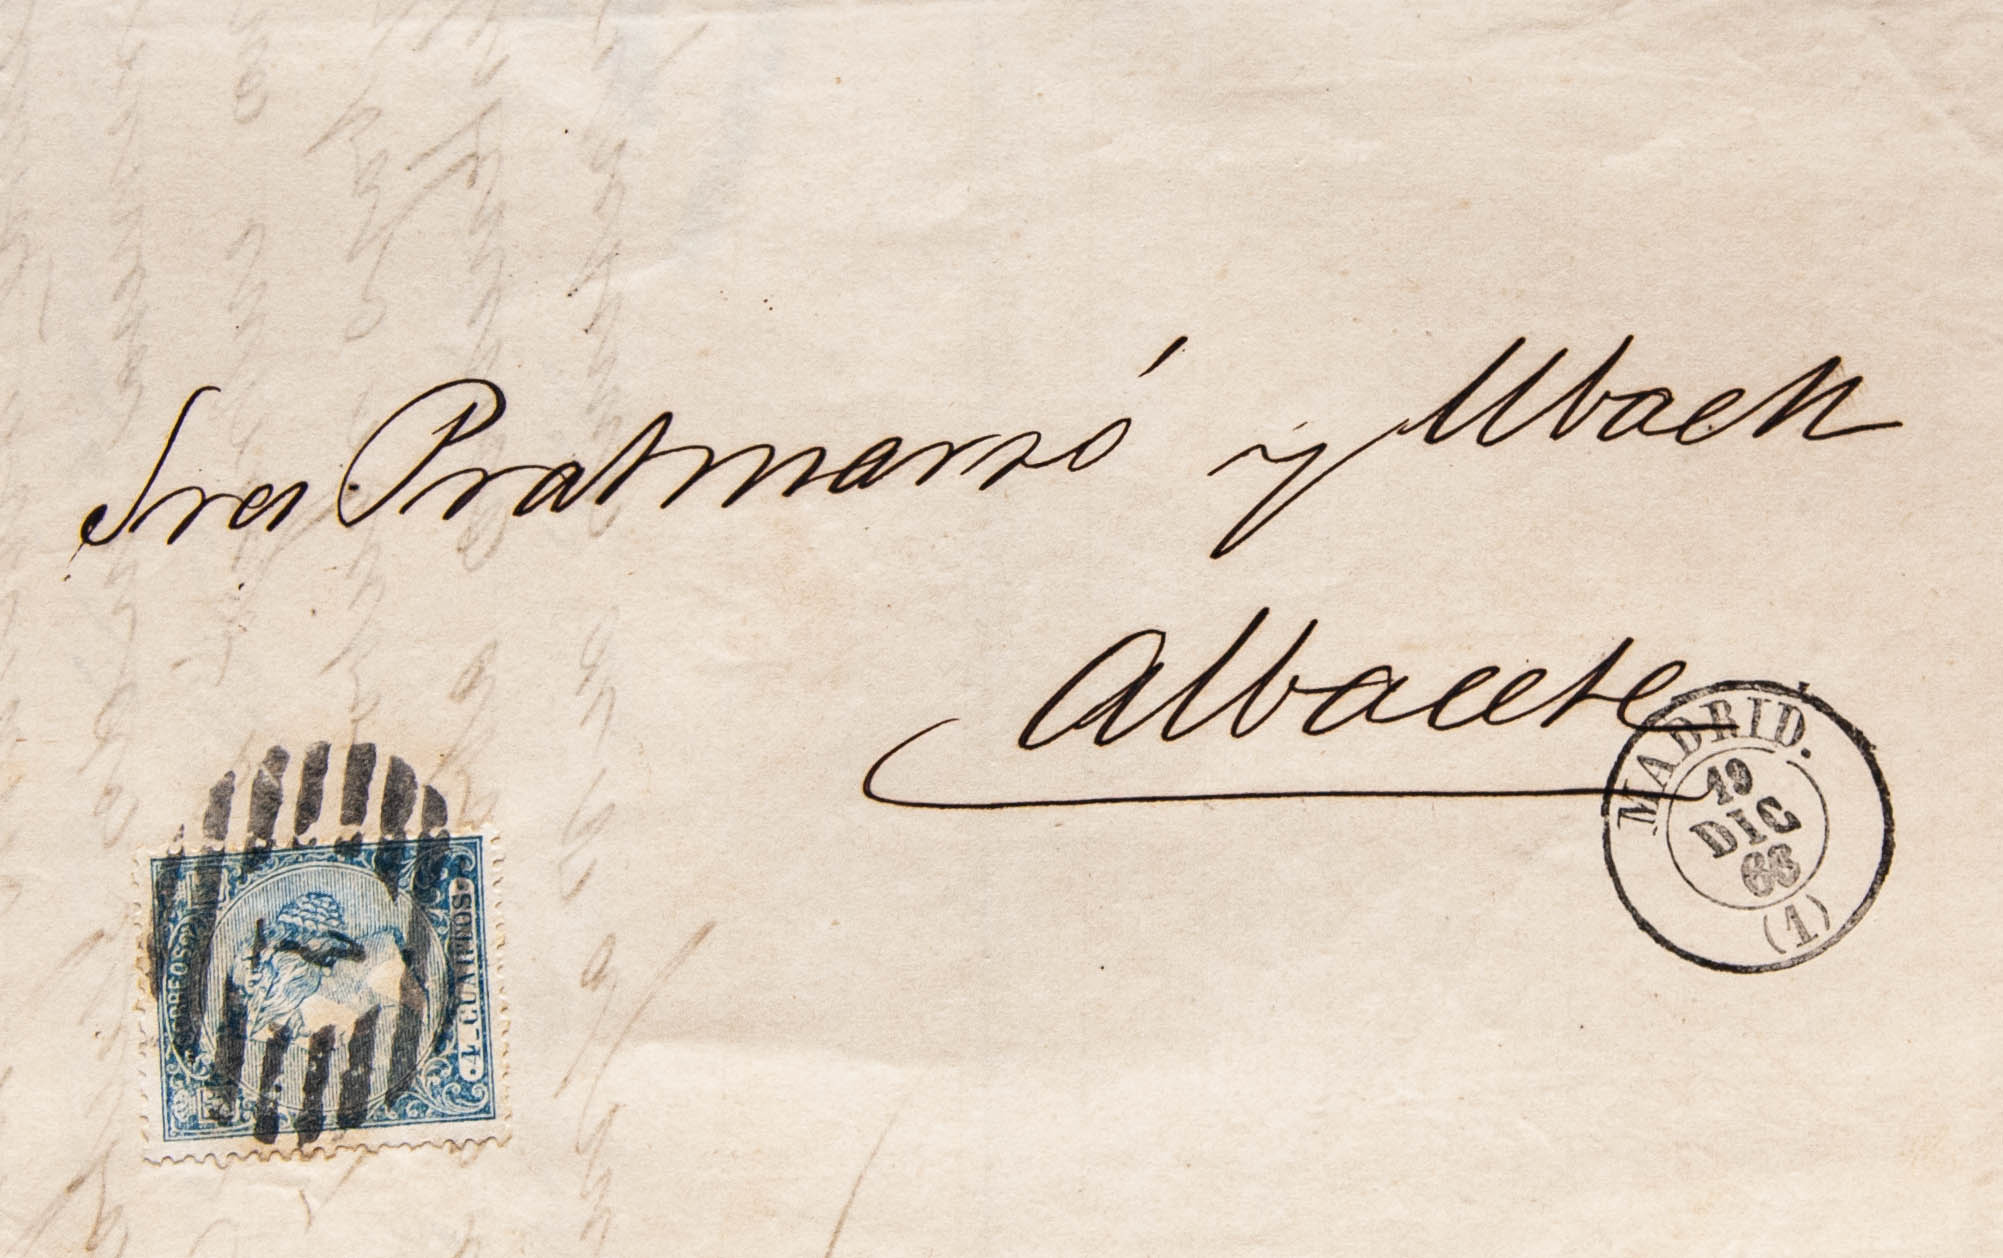 Sres Pratmarsó y Ubach
Albacete
MADRID.
19
DIC
66
(1)
CORREOS
4 CUARTOS